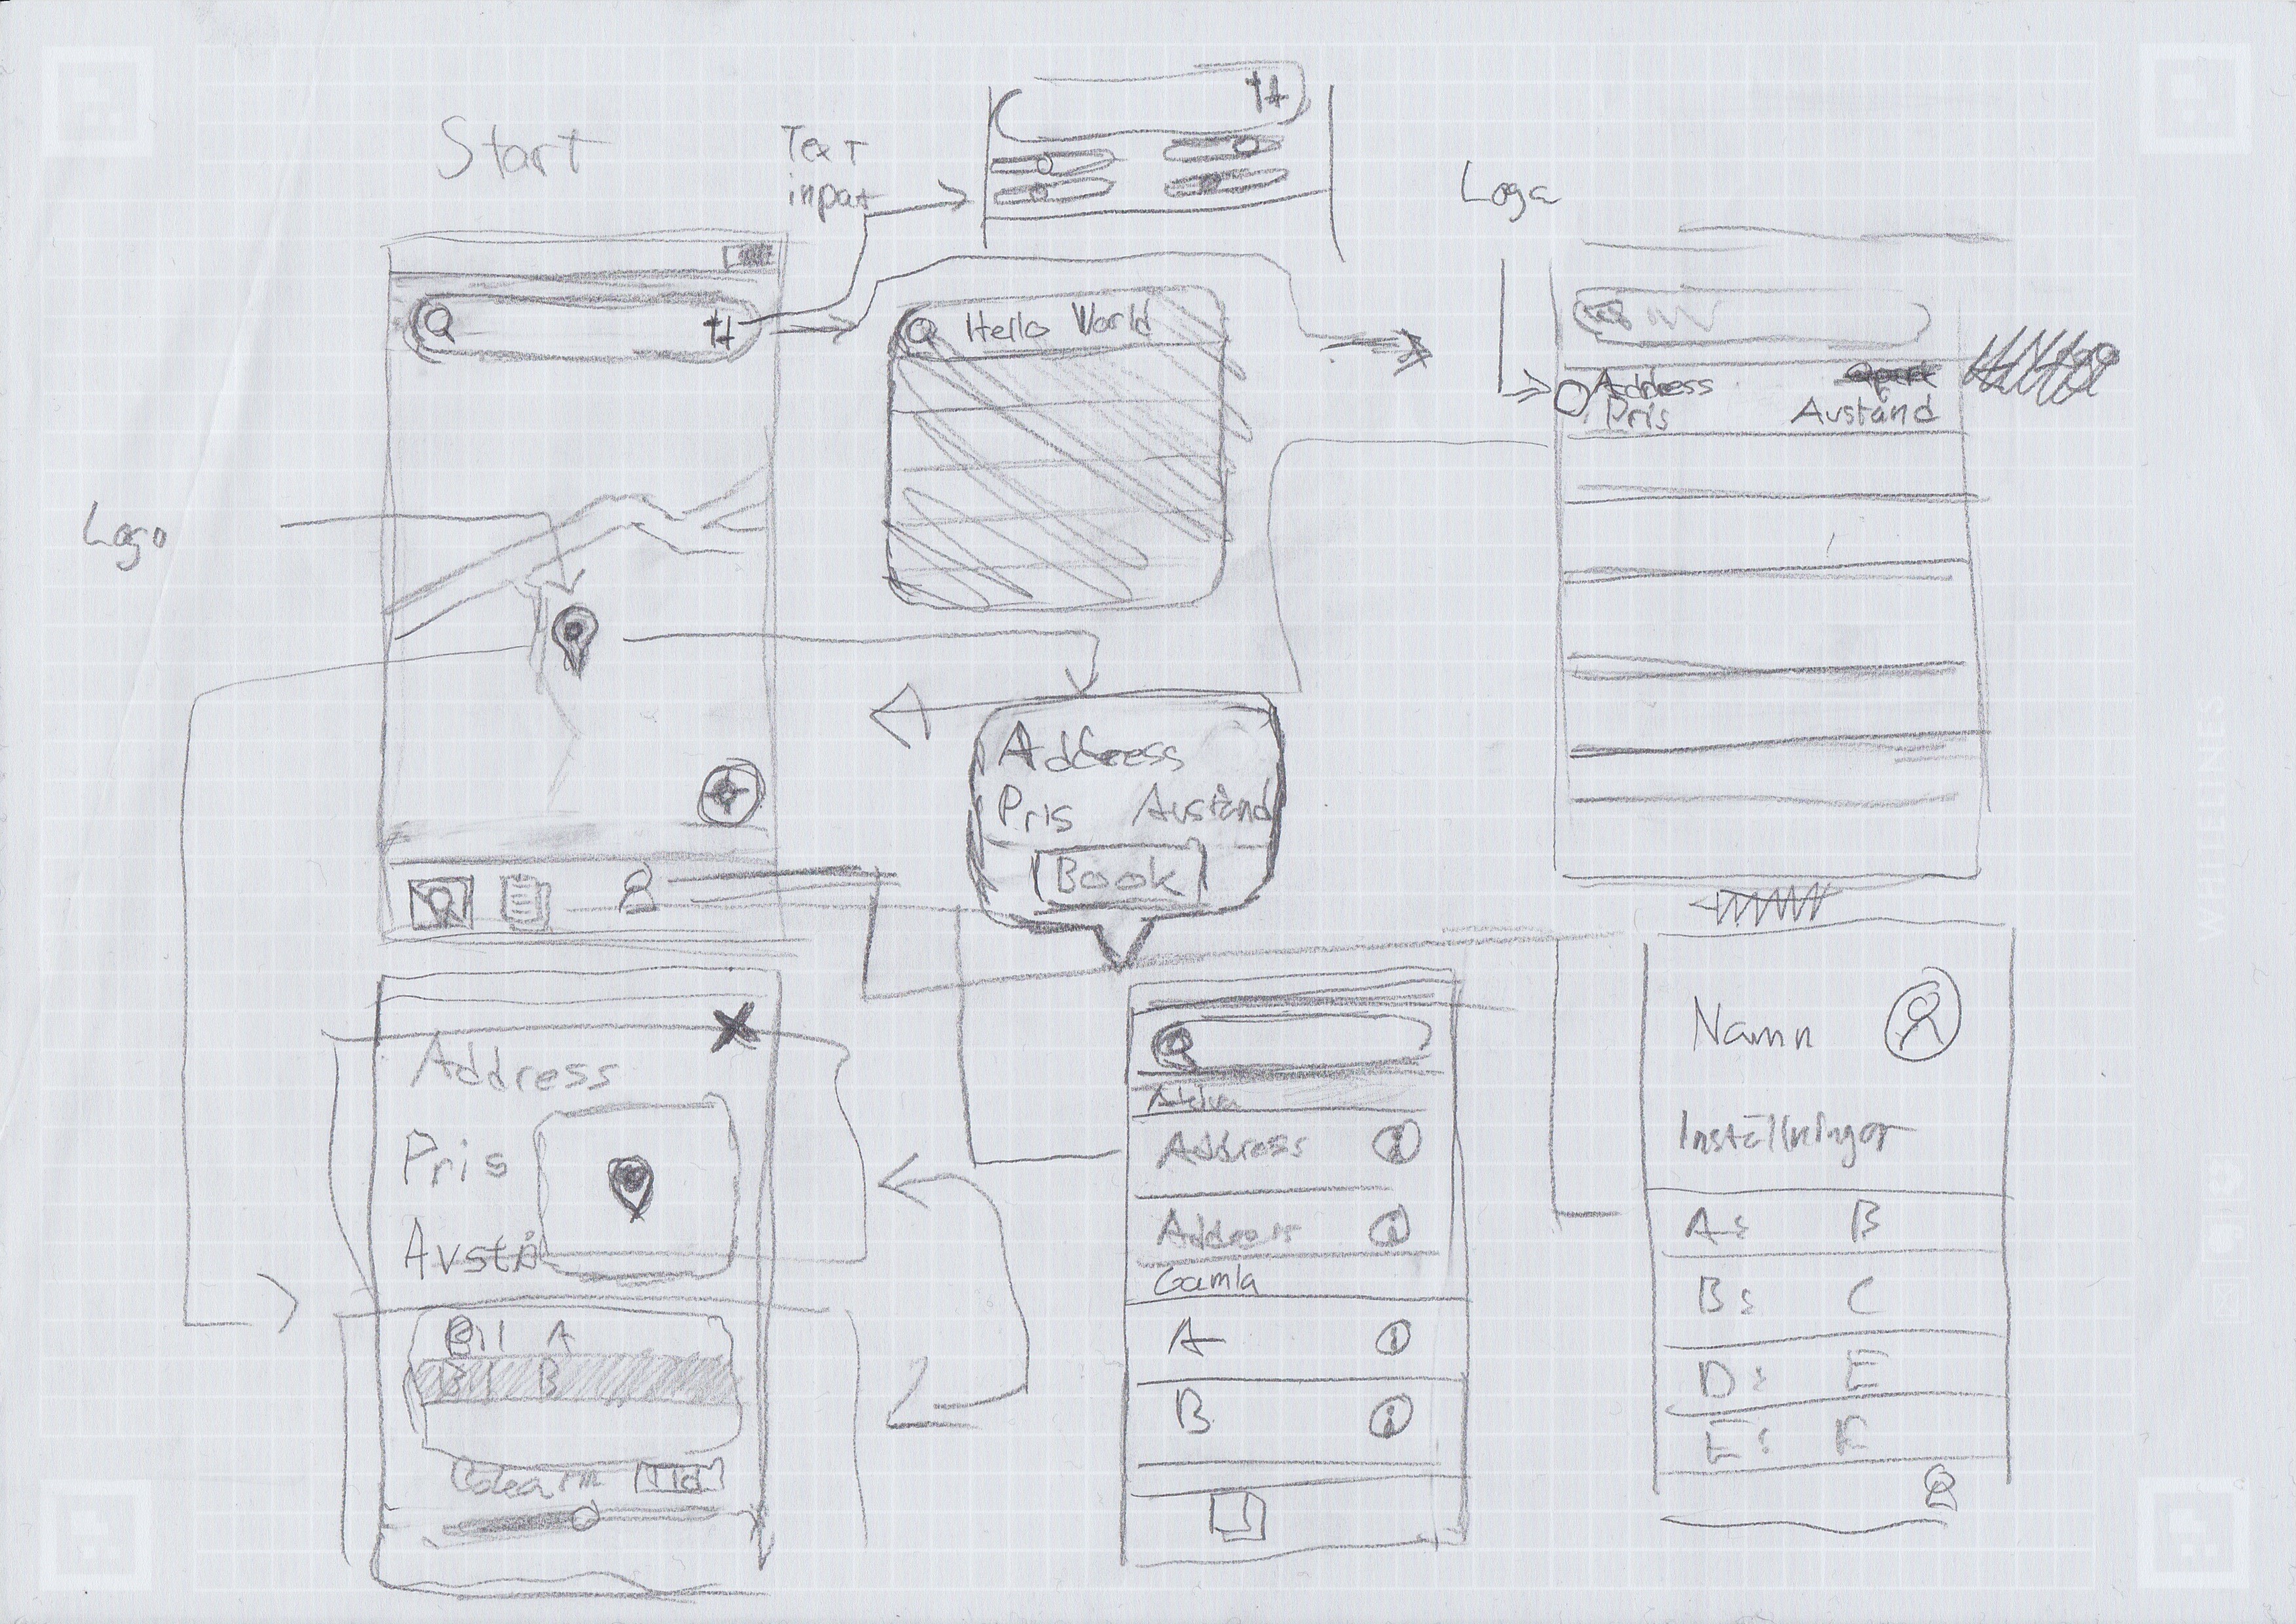 Start
Text
input
Loga
Hello World
Address
Pris Avstånd
Logo
Address
Pris Avstånd
Book
Address
Pris
Avstå
Bil A
B B
Address
Address
Gamla
A
B
Namn
Inställningar
A: B
B: C
D: E
E: F